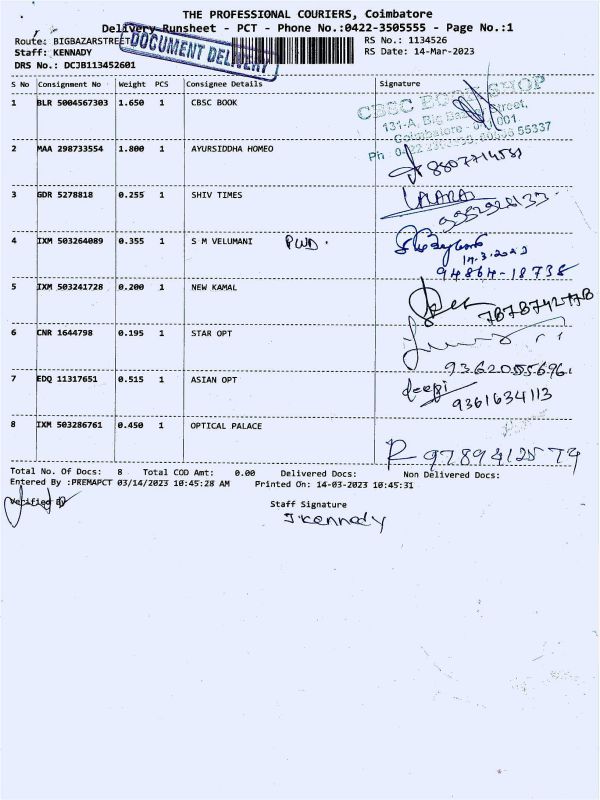 THE PROFESSIONAL COURIERS, Coimbatore
Delivery Runsheet - PCT - Phone No.:0422-3505555 - Page No.:1
Route: BIGBAZARSTREET
DOCUMENT DELIVERY
RS No.: 1134526
Staff: KENNADY
RS Date: 14-Mar-2023
DRS No.: DCJB113452601
S No Consignment No Weight PCS Consignee Details Signature
1 BLR 5004567303 1.650 1 CBSC BOOK
CBSC BOOK SHOP
131-A, Big Bazaar Street,
Coimbatore - 641 001.
Ph
55337
2 MAA 298733554 1.800 1 AYURSIDDHA HOMEO
3 GDR 5278818 0.255 1 SHIV TIMES
4 IXM 503264089 0.355 1 S M VELUMANI PWD.
14.3.2023
94864-18738
5 IXM 503241728 0.200 1 NEW KAMAL
6 CNR 1644798 0.195 1 STAR OPT
9362055696.
7 EDQ 11317651 0.515 1 ASIAN OPT
deepi
9361634113
8 IXM 503286761 0.450 1 OPTICAL PALACE
R 9789412579
Total No. Of Docs: 8 Total COD Amt: 0.00 Delivered Docs: Non Delivered Docs:
Entered By :PREMAPCT 03/14/2023 10:45:28 AM Printed On: 14-03-2023 10:45:31
Verified By
Staff Signature
J kennady